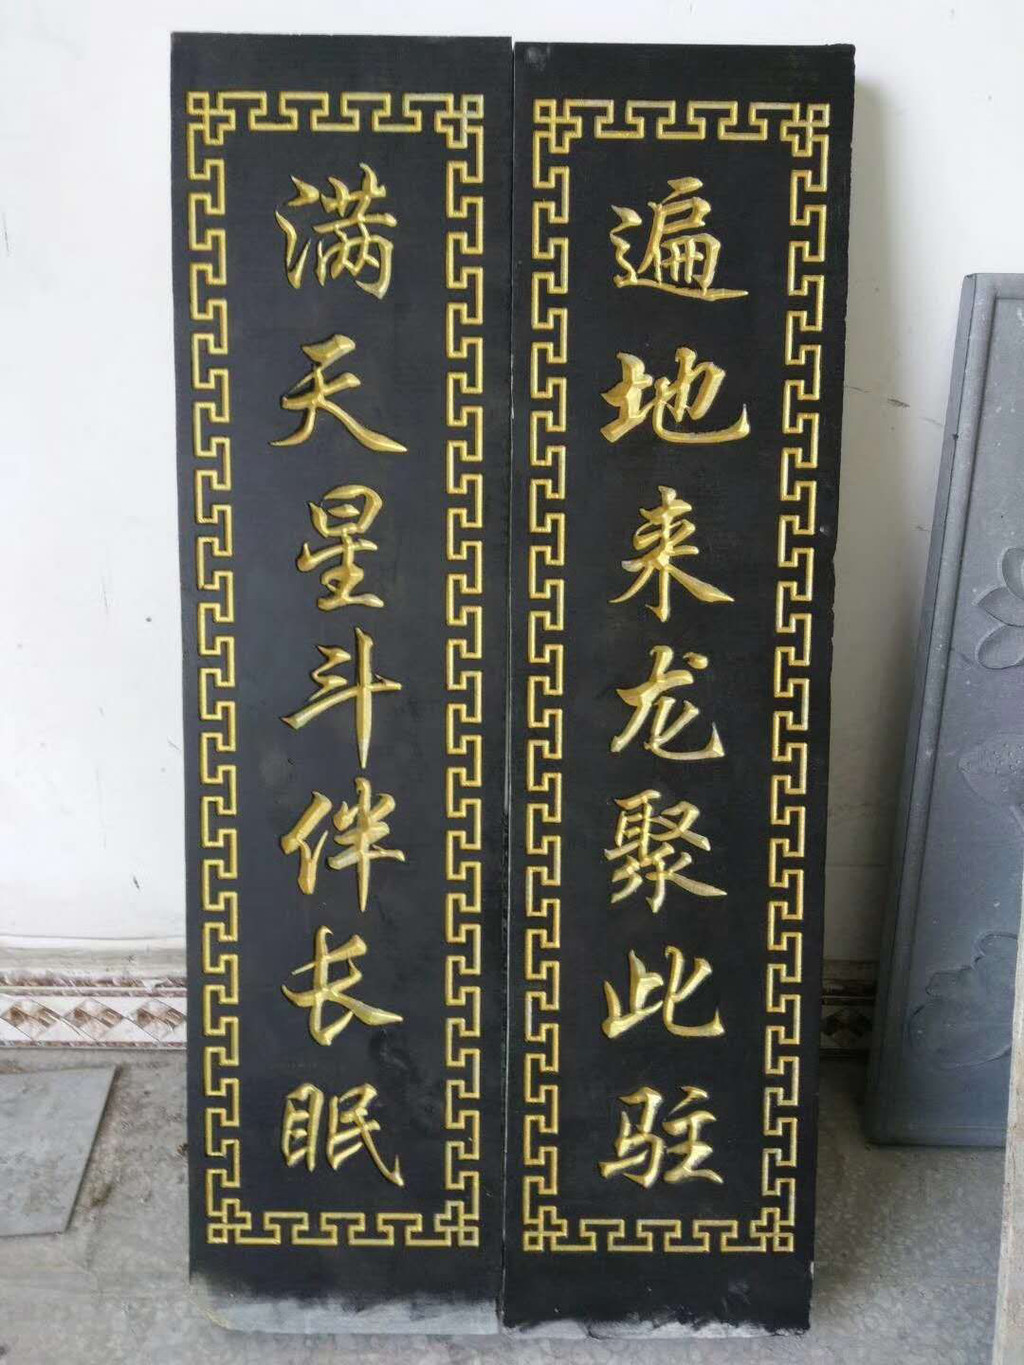 遍地来龙聚此驻
满天星斗伴长眠